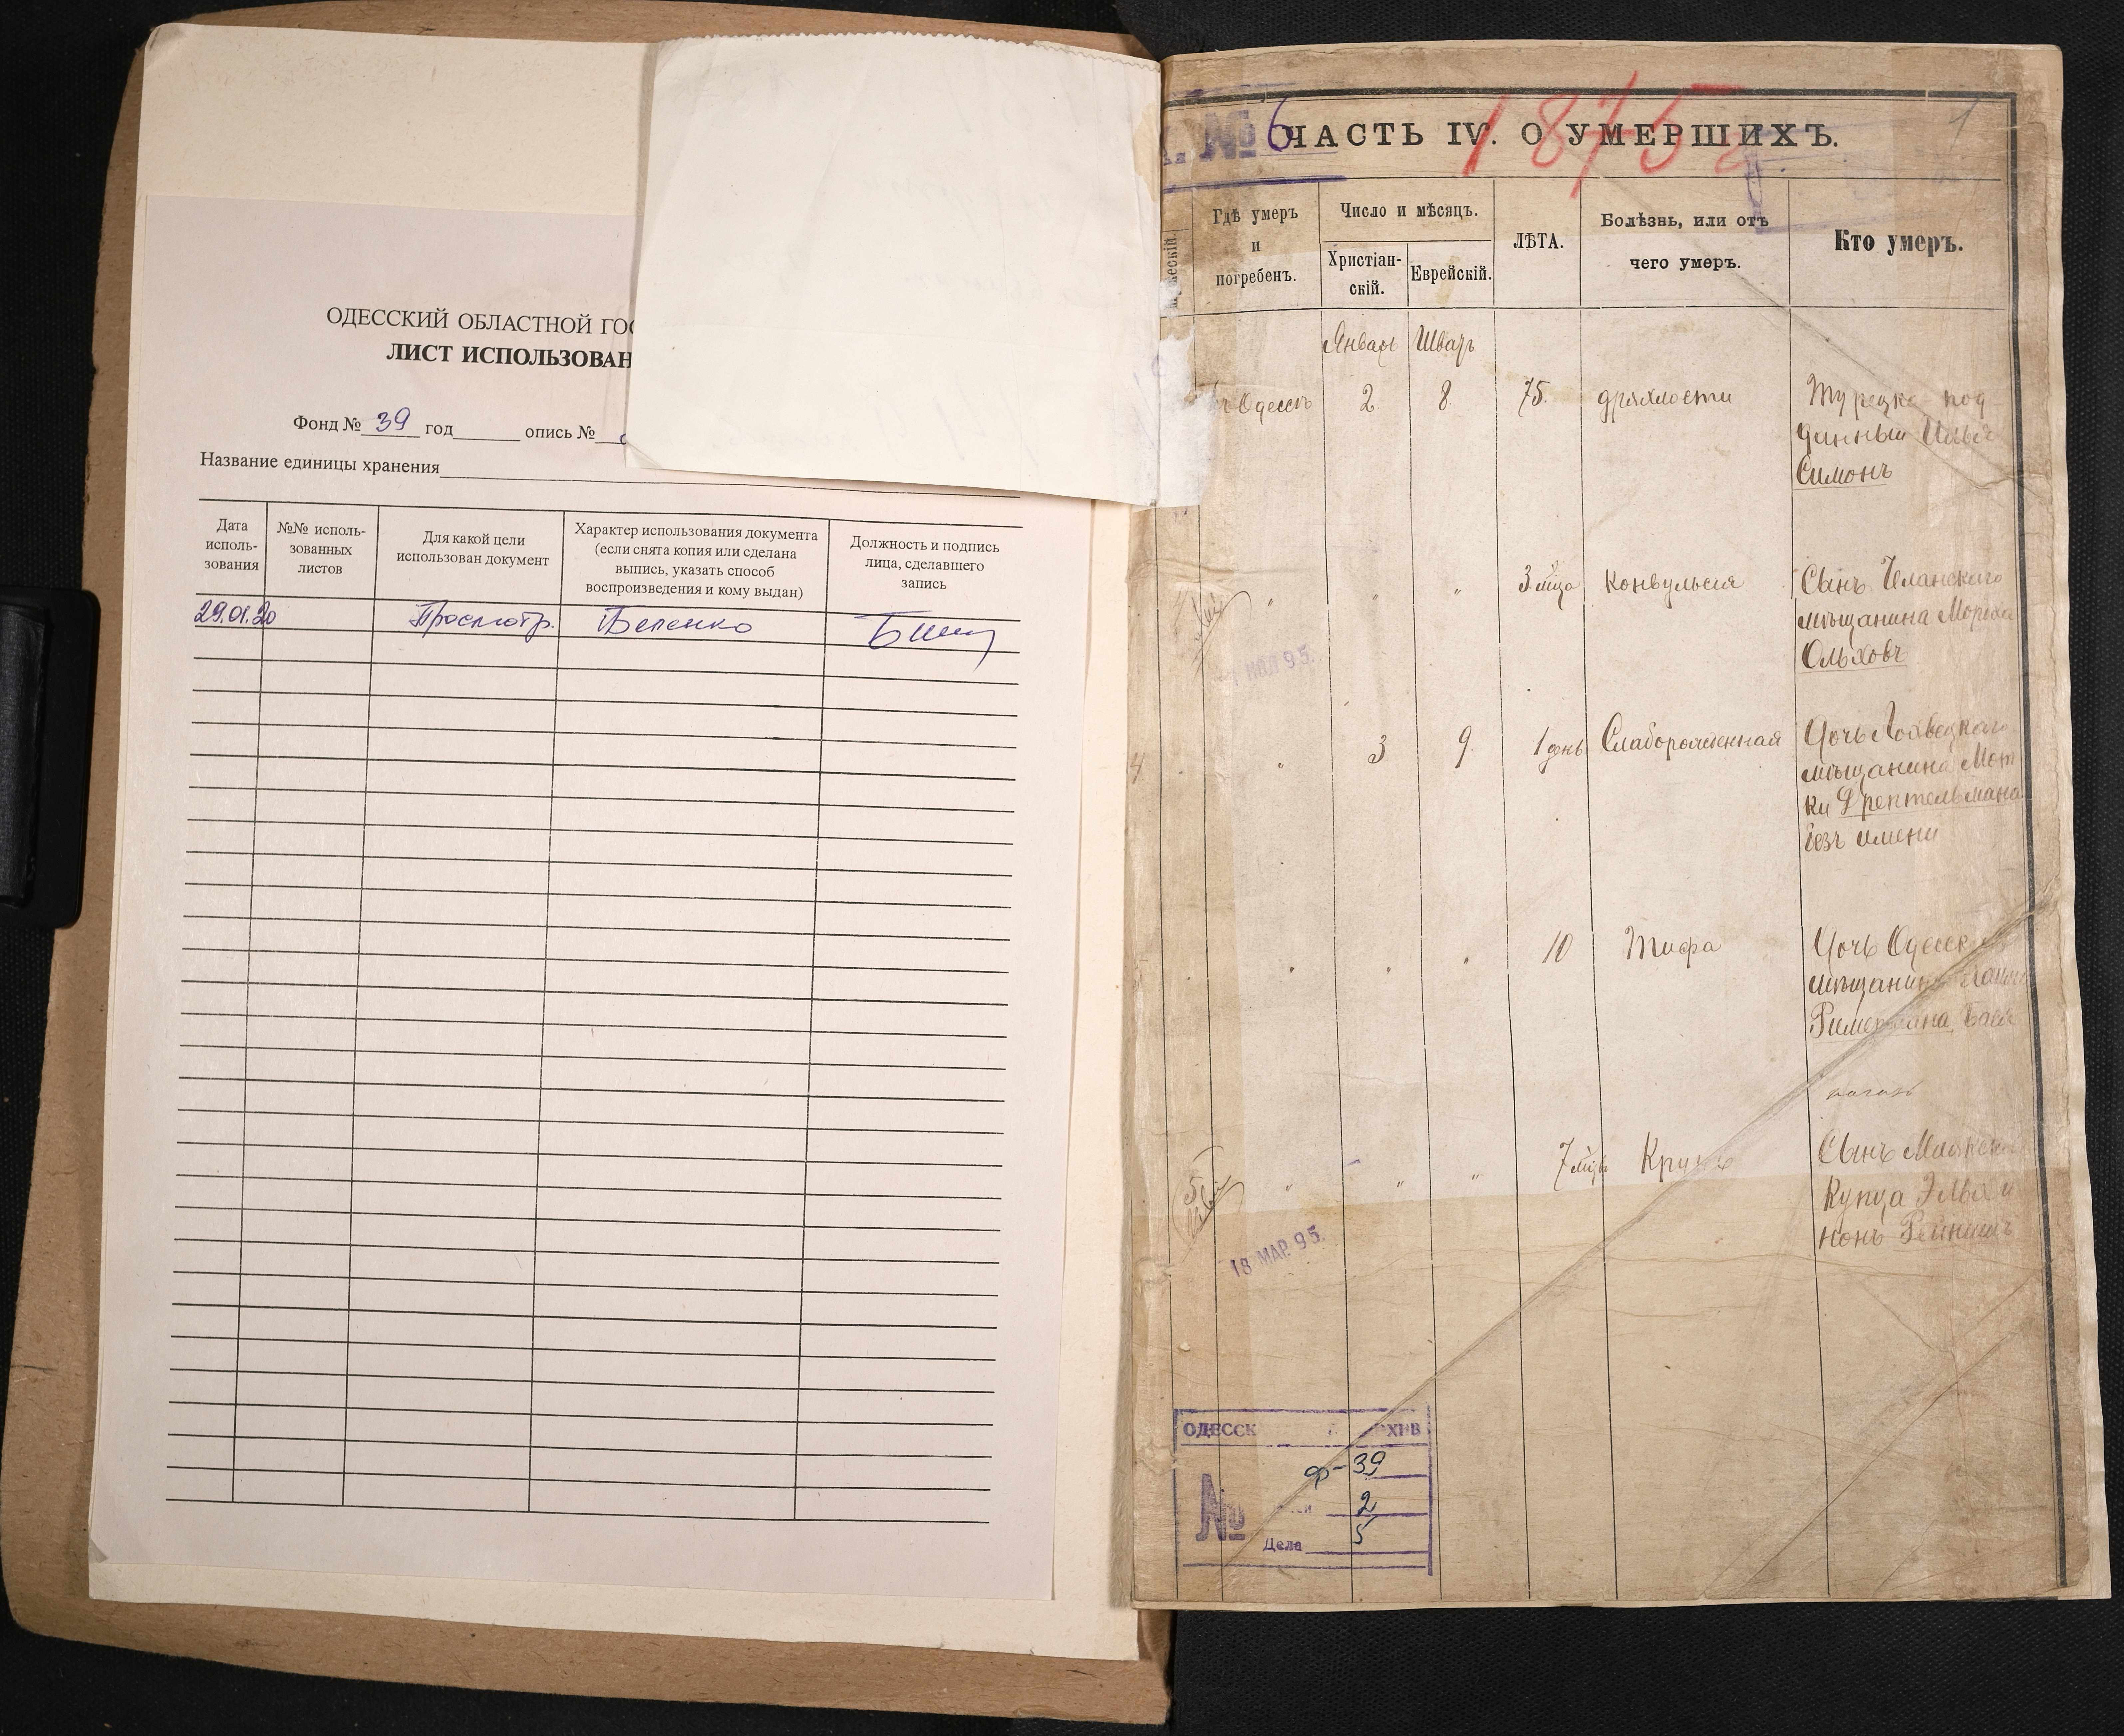 ОДЕССКИЙ ОБЛАСТНОЙ ГОС
ЛИСТ ИСПОЛЬЗОВАН
Фонд № 39 год опись №
Название единицы хранения
Дата
исполь-
зования
№№ исполь-
зованных
листов
Для какой цели
использован документ
Характер использования документа
(если снята копия или сделана
выпись, указать способ
воспроизведения и кому выдан)
Должность и подпись
лица, сделавшего
запись
29.01.20 Просмотр.
№ 6
1875
1
ЧАСТЬ IV. О УМЕРШИХЪ.
Гдѣ умеръ
и
погребенъ.
Число и мѣсяцъ.
Христіан-
скій.
Еврейскій.
ЛѢТА.
Болѣзнь, или отъ
чего умеръ.
Кто умеръ.
Январь Шватъ
Одессѣ 2 8 75 дряхлости
Турецко под
данный
Симонъ
" " " 3 м̃ца Конвульсія
Сынъ
мѣщанина
Ольховъ
МАР 95.
" 3 9 1 день Слаборожденная
Дочь
мѣщанина Мот
ки
безъ имени
4
" " " 10 Тифа
Дочь Одесск
мѣщанин
" " " 7 Крупъ
Сынъ
Купца
нонъ
18 МАР. 95.
ОДЕССК АРХИВ
№
ф-39
2
Дела 5